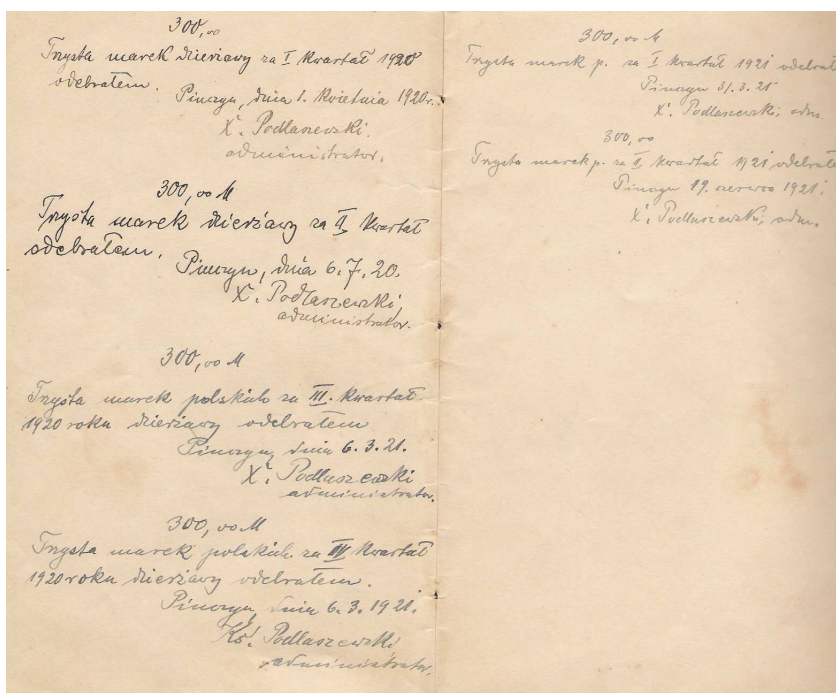 300,00
Trzysta marek dzierżawy za I kwartał 1920
odebrałem.
Pinczyn, dnia 1. Kwietnia 1920r.
X. Podlaszewski.
administrator.
300,00 M
Trzysta marek dzierżawy za II kwartał
odebrałem.
Pinczyn, dnia 6.7.20.
X. Podlaszewski,
administrator.
300,00 M
Trzysta marek polskich za III. kwartał
1920 roku dzierżawy odebrałem
Pinczyn, dnia 6.3.21.
X. Podlaszewski
administrator.
300,00 M
Trzysta marek polskich za IV kwartał
1920 roku dzierżawy odebrałem.
Pinczyn, dnia 6.3.1921.
Ks. Podlaszewski,
administrator.
300,00 M
Trzysta marek p. za I kwartał 1921 odebrał
Pinczyn 31.3.21
X. Podlaszewski, adm.
300,00
Trzysta marek p. za II kwartał 1921 odebrałe
Pinczyn 19. czerwca 1921.
X. Podlaszewski, adm.